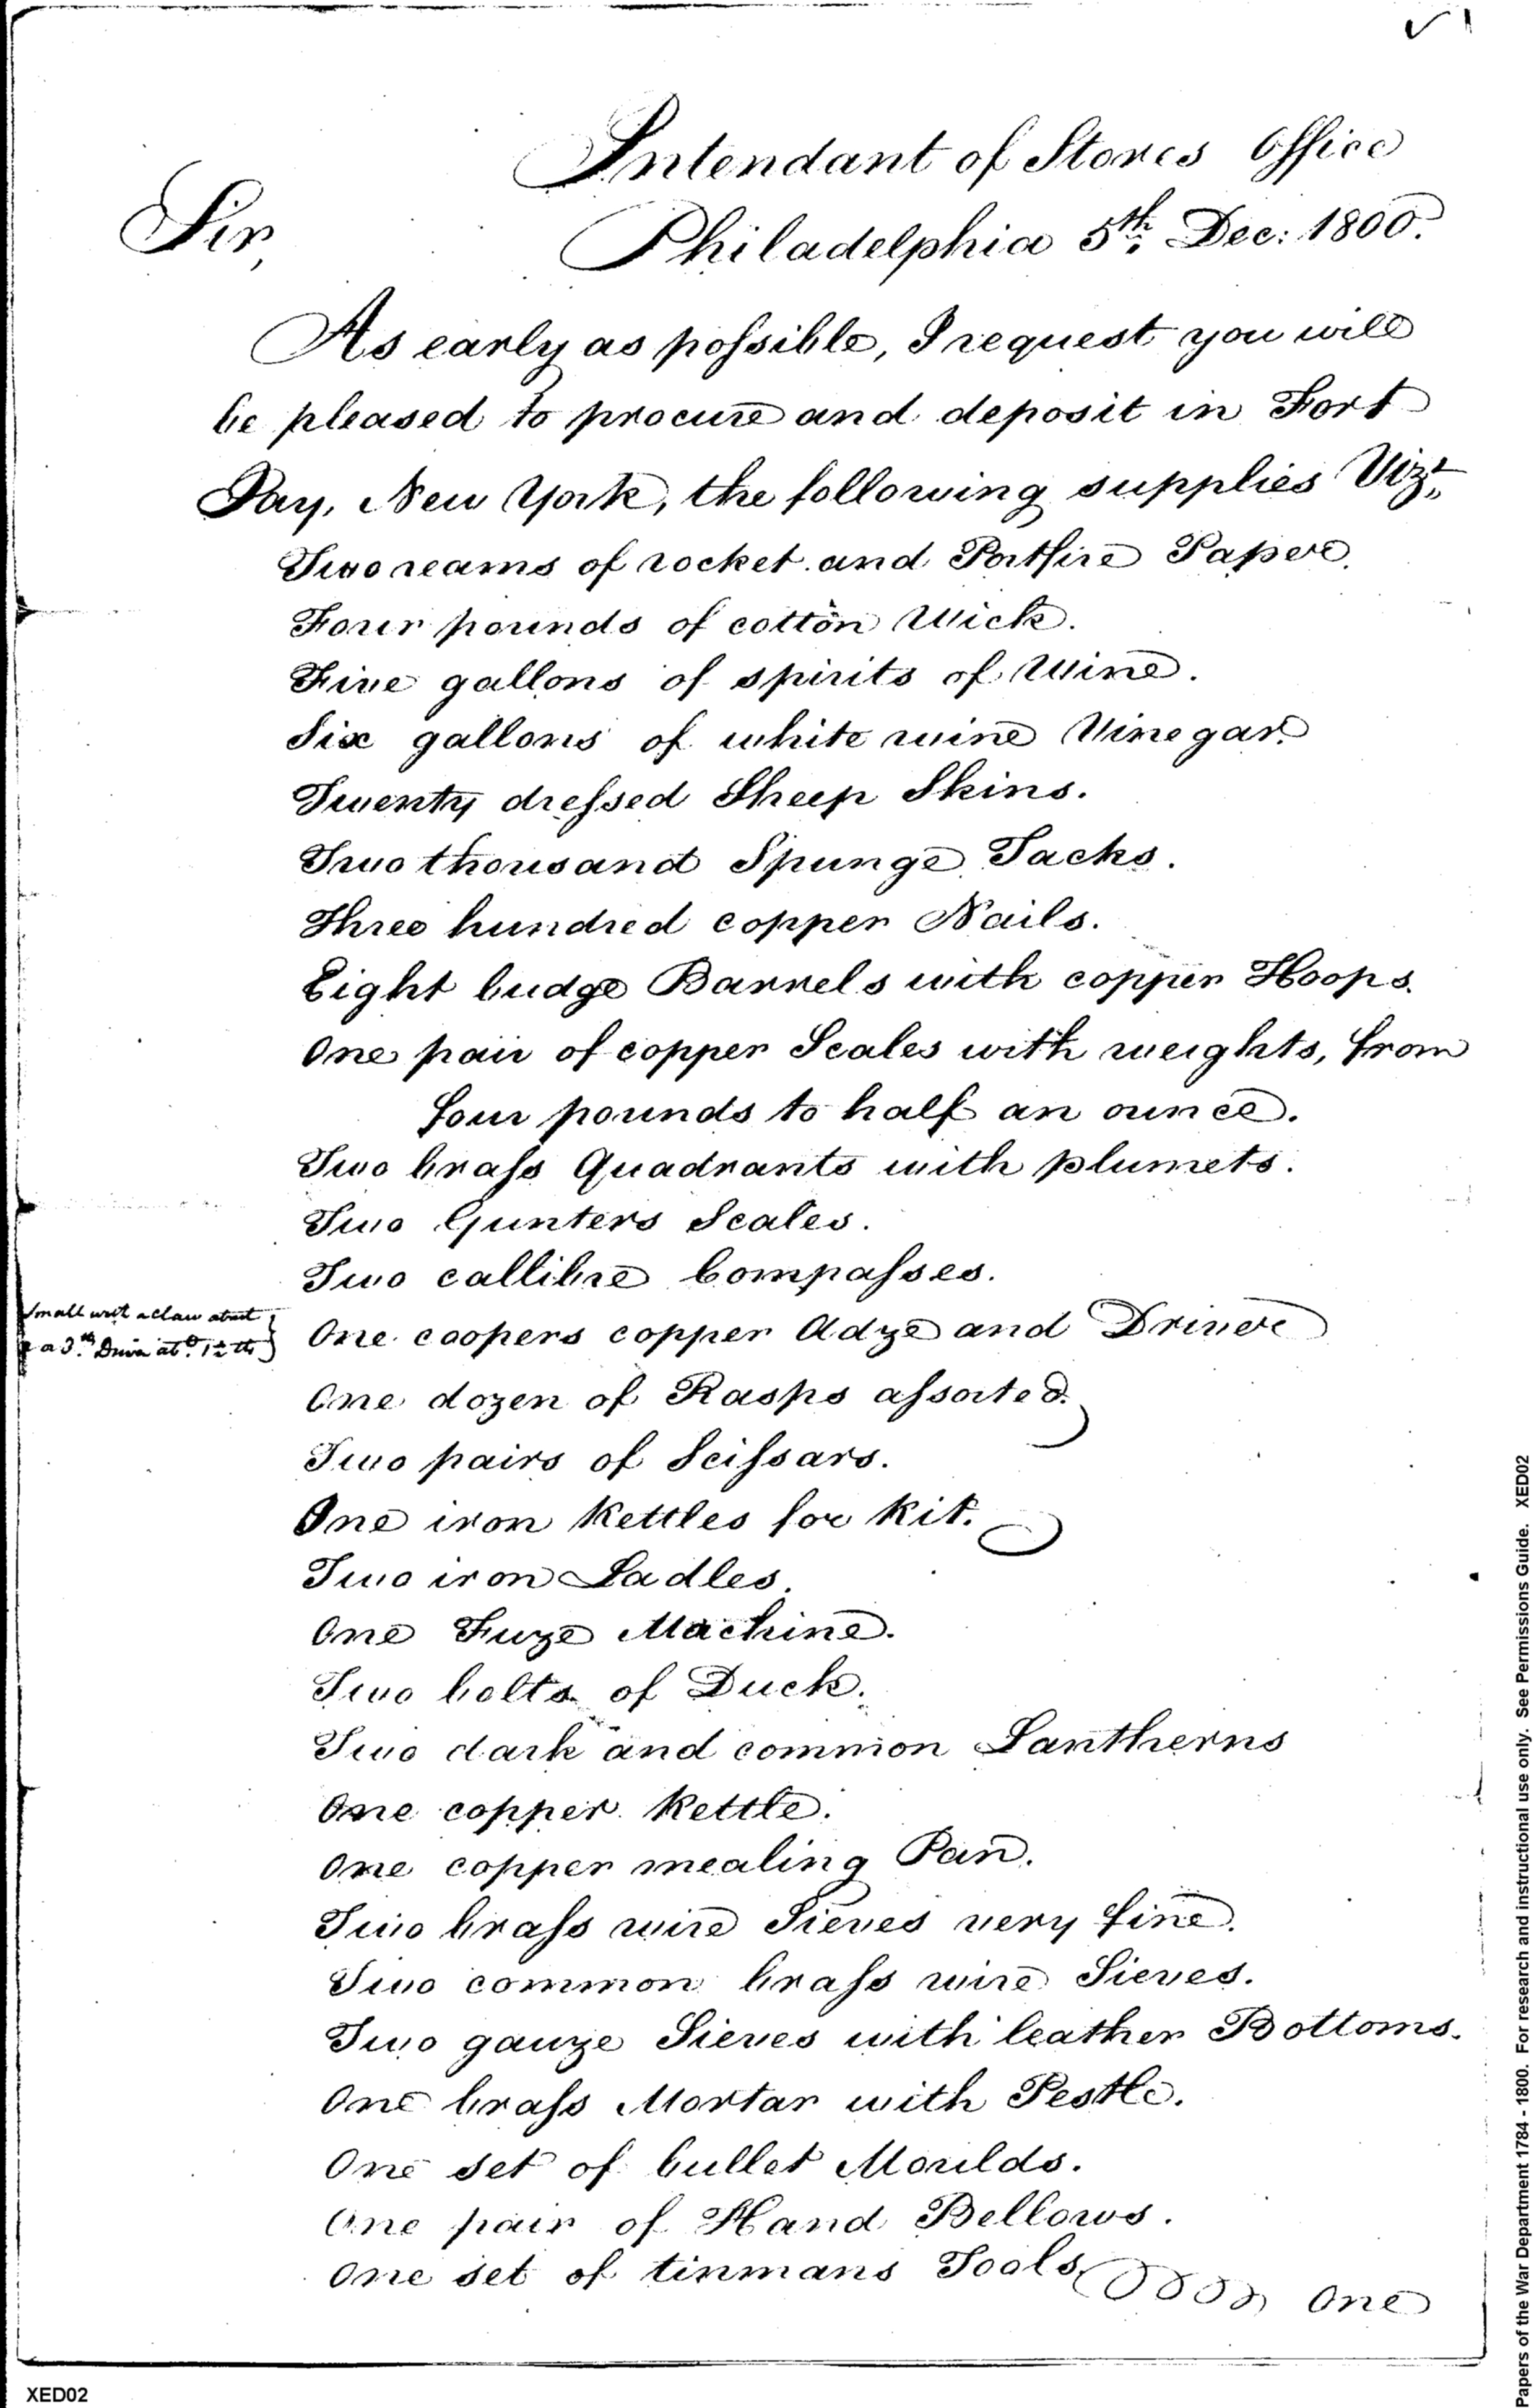 Intendant of Stores Office
Sir,
Philadelphia 5th Dec: 1800.
As early as possible, I request you will
be pleased to procure and deposit in Fort
Jay, New York, the following supplies Vizt
Two reams of rocket and Portfire Paper.
Four pounds of cotton Wick.
Five gallons of spirits of Wine.
Six gallons of white wine Vinegar.
Twenty dressed Sheep Skins.
Two thousand Spunge Tacks.
Three hundred copper Nails.
Eight budge Barrels with copper Hoops.
One pair of copper Scales with weights, from
four pounds to half an ounce.
Two brass Quadrants with plumets.
Two Gunters Scales.
Two callibre Compasses.
Small with a claw about
a 3. Driver abt. 1½ lb
One coopers copper Adze and Driver
One dozen of Rasps assorted.
Two pairs of Scissars.
One iron Kettles for Kit.
Two iron Ladles.
One Fuze Machine.
Two bolts of Duck.
Two dark and common Lantherns
One copper Kettle.
One copper mealing Pan.
Two brass wire Sieves very fine.
Two common brass wire Sieves.
Two gauze Sieves with leather Bottoms.
One brass Mortar with Pestle.
One set of bullet Moulds.
One pair of Hand Bellows.
One set of tinmans Tools
One
XED02
Papers of the War Department 1784 - 1800. For research and instructional use only. See Permissions Guide. XED02